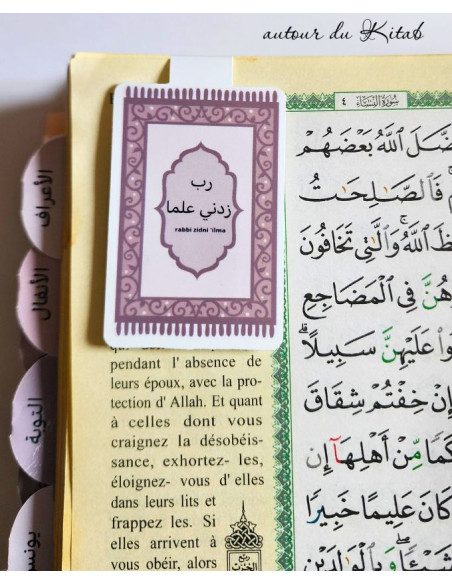 autour du Kitab
رب
زدني علما
rabbi zidni 'ilma
الأعراف
الأنفال
التوبة
يونس
pendant l' absence de
leurs époux, avec la pro-
tection d' Allah. Et quant
à celles dont vous
craignez la désobéis-
sance, exhortez- les,
éloignez- vous d' elles
dans leurs lits et
frappez les. Si
elles arrivent à
vous obéir, alors
ربع
الحزب
سُورَةُ النِّسَاء ٤
ضَّلَ ٱللَّهُ بَعْضَهُمْ
فَٱلصَّـٰلِحَـٰتُ
ظَ ٱللَّهُ وَٱلَّـٰتِى تَخَافُونَ
هُنَّ فِى ٱلْمَضَاجِعِ
وا۟ عَلَيْهِنَّ سَبِيلًا
إِنْ خِفْتُمْ شِقَاقَ
كَمًا مِّنْ أَهْلِهَآ إِن
كَانَ عَلِيمًا خَبِيرًا
شَيْـًٔا وَبِٱلْوَٰلِدَيْنِ